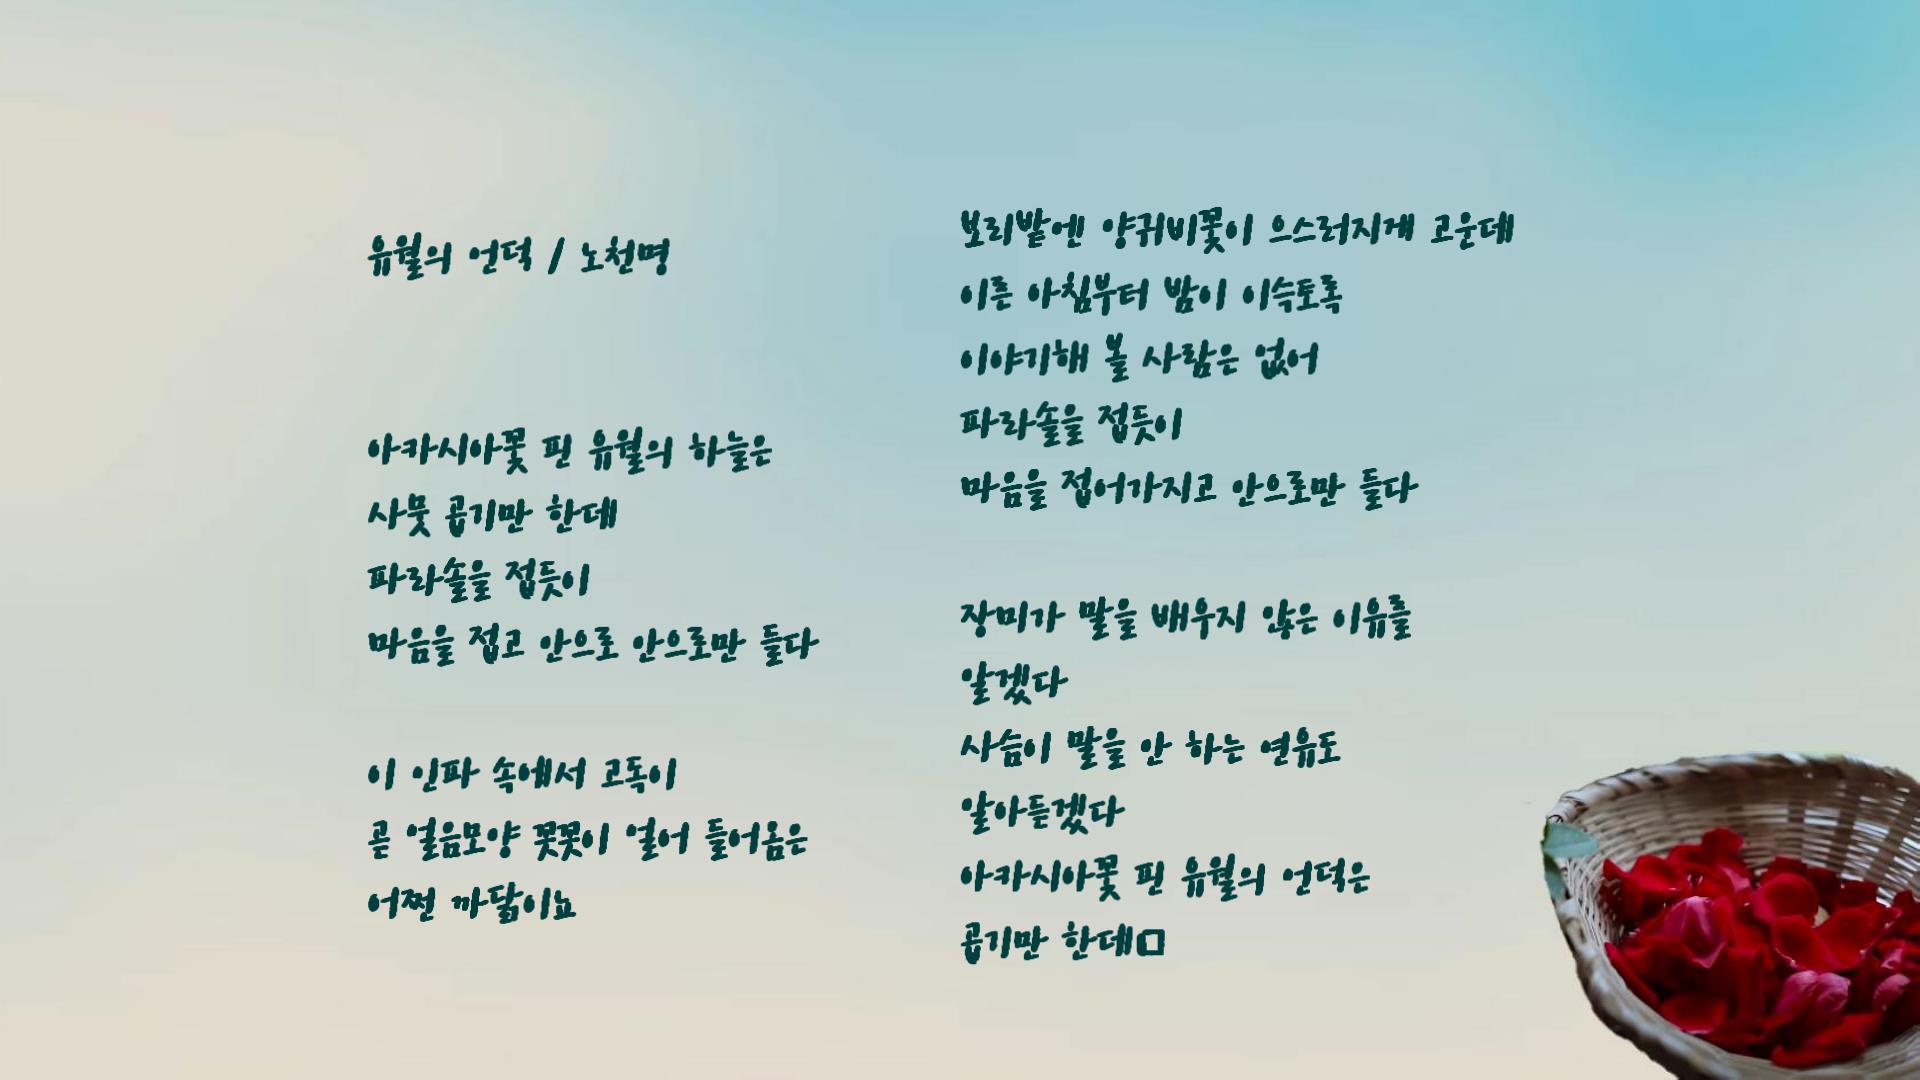 유월의 언덕 / 노천명
아카시아꽃 핀 유월의 하늘은
사뭇 곱기만 한데
파라솔을 접듯이
마음을 접고 안으로 안으로만 들다
이 인파 속에서 고독이
곧 얼음모양 꼿꼿이 얼어 들어옴은
어쩐 까닭이뇨
보리밭엔 양귀비꽃이 으스러지게 고운데
이른 아침부터 밤이 이슥토록
이야기해 볼 사람은 없어
파라솔을 접듯이
마음을 접어가지고 안으로만 들다
장미가 말을 배우지 않은 이유를
알겠다
사슴이 말을 안 하는 연유도
알아듣겠다
아카시아꽃 핀 유월의 언덕은
곱기만 한데□